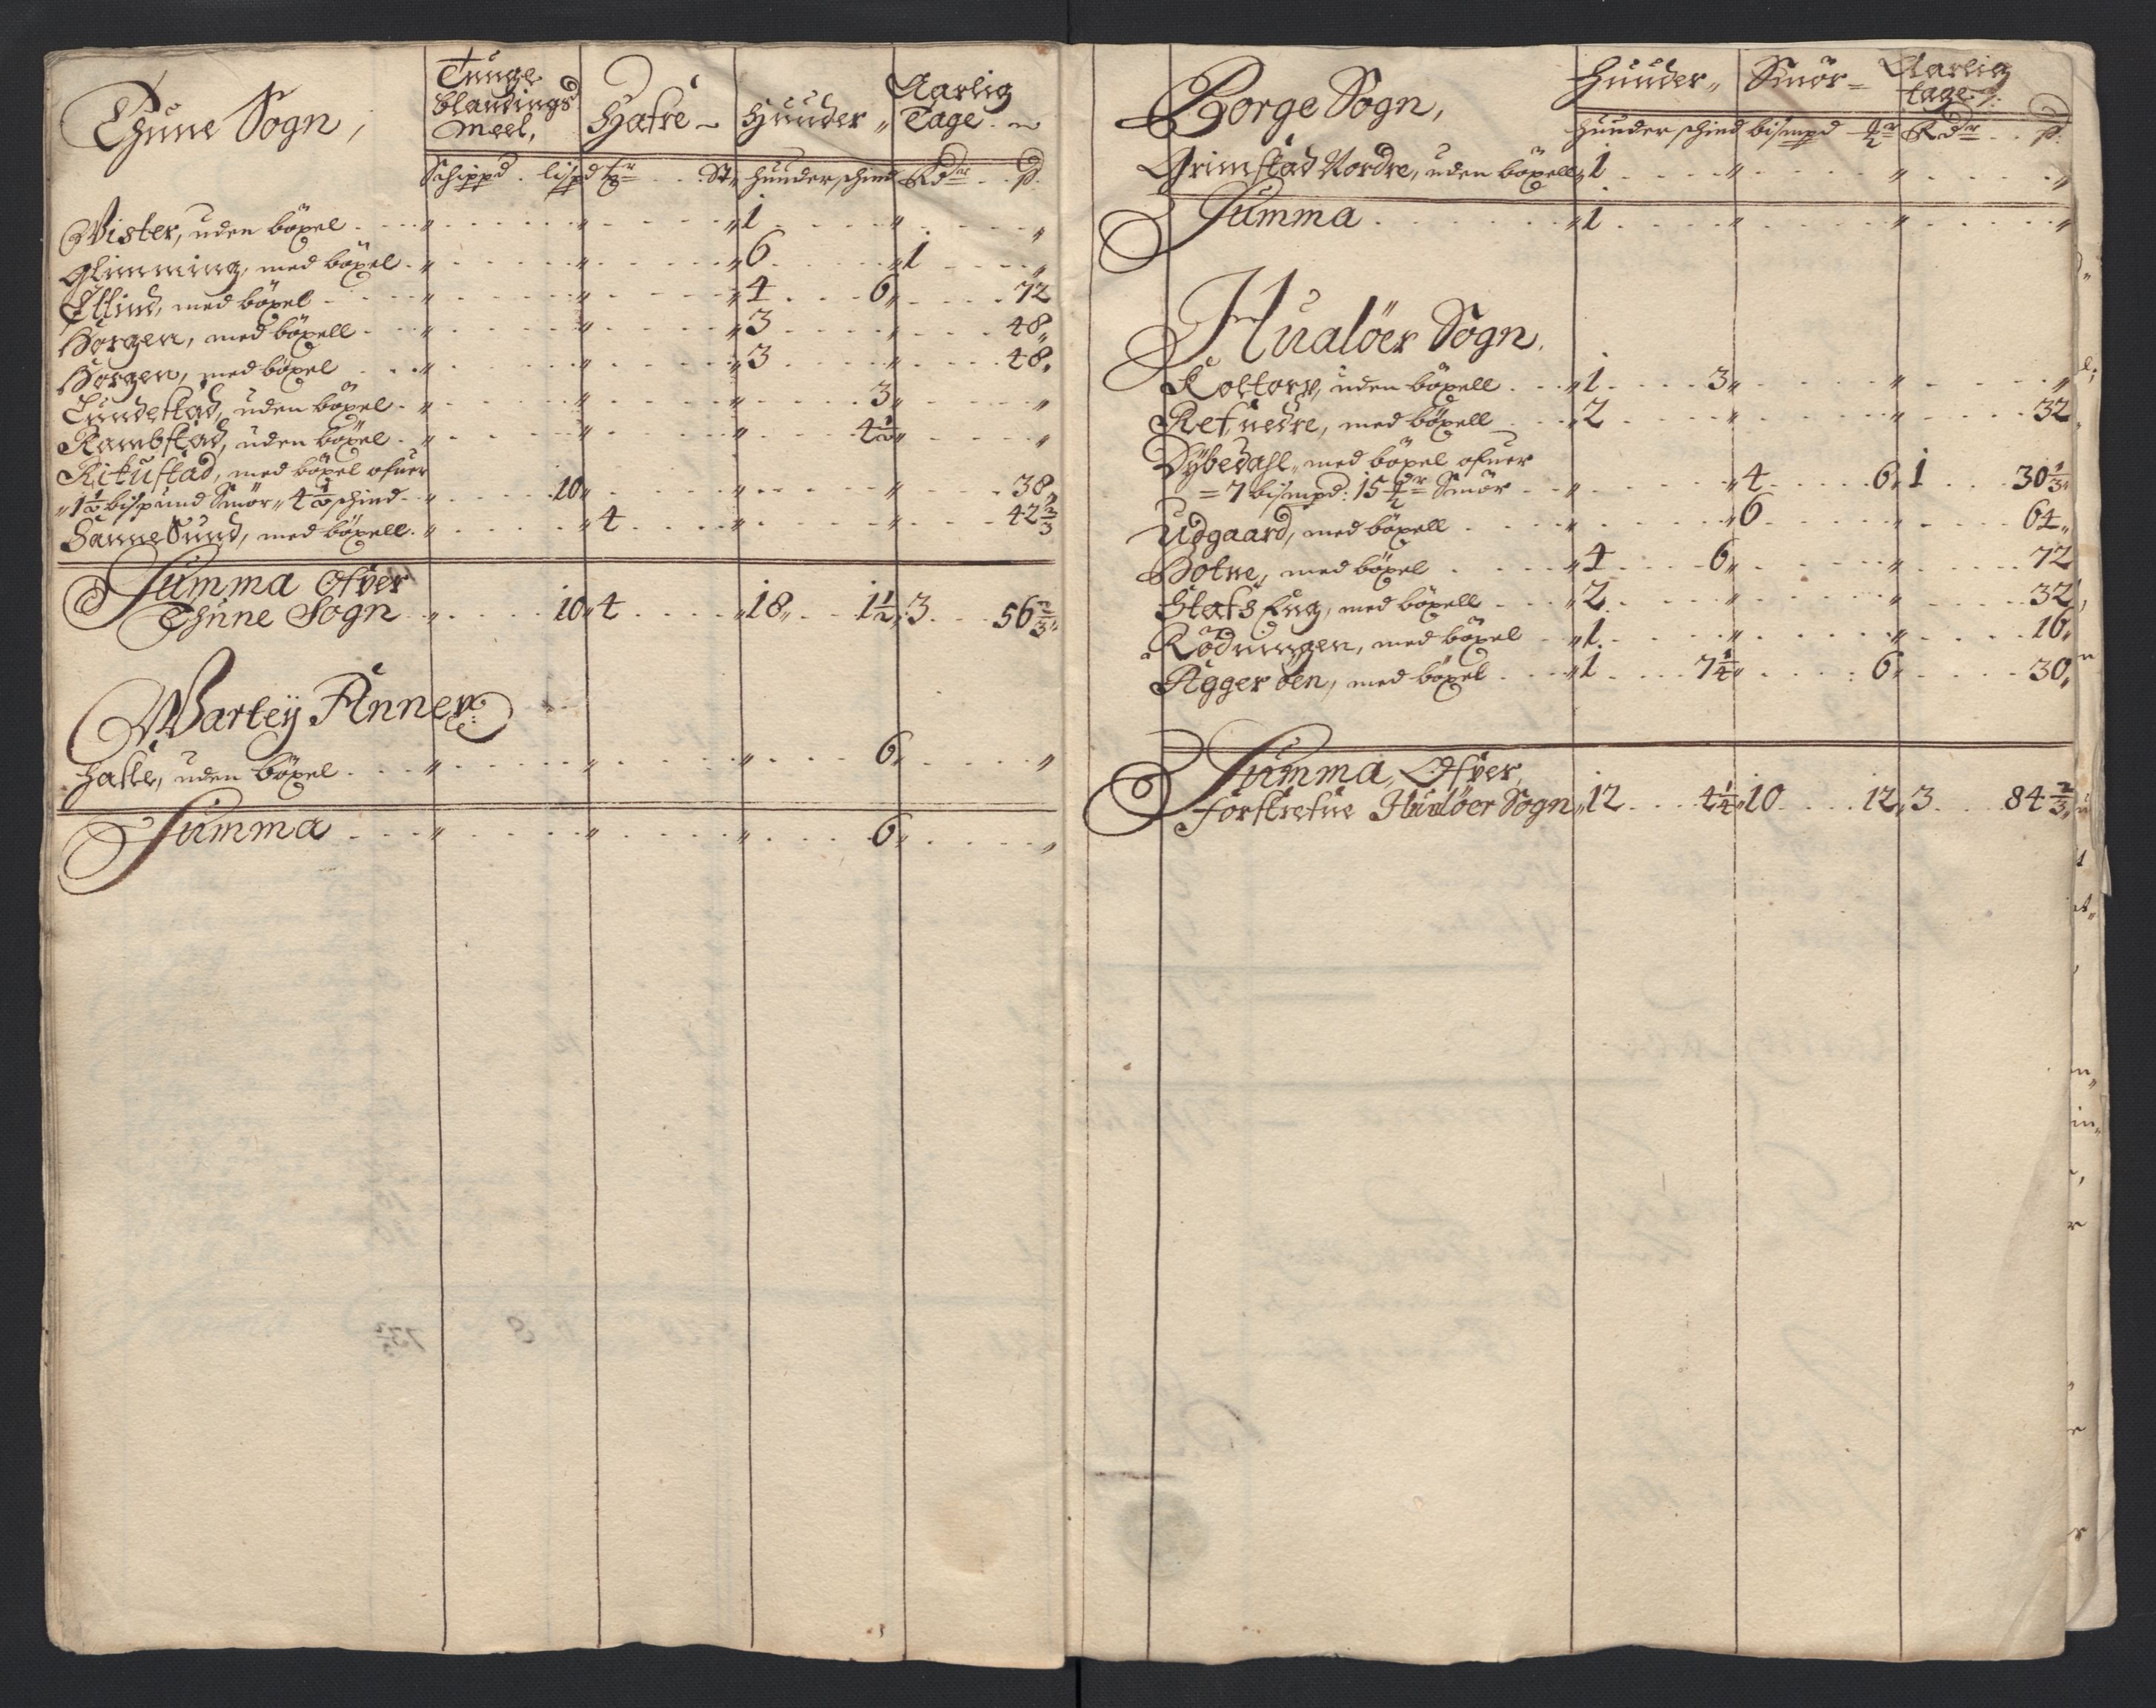 Thune Sogn, Tunge Hafre Huuder Aarlig
blandings Tage
Meel,
Schippd. lispd tr St: huuder schind Rdr ß
Wister, uden böxel „ „ „ 1 „ „
Glimming, med böxel „ „ „ 6 „ 1 „
Etlind, med böxel „ „ „ 4 6 „ 72
Borgen, med böxell „ „ „ 3 „ 48
Borgen, med böxel „ „ „ 3 „ 48
Tundestad, uden böxel „ „ „ 3 „ „
Rambstad, uden böxel „ „ „ 4½ „ „
Rikustad, med böxel ofuer
„ 1½ bispund Smör „ 4½ schind „ 10 „ „ „ 38
Sannesund, med böxell „ „ 4 „ „ 42⅔
Summa Ofver
Thune Sogn „ 10 „ 4 „ 18 „ 1½ „ 3 56⅔
Warteij Annex:
Hafle, uden böxel „ „ „ 6 „ „
Summa „ „ „ 6 „ „
Borge Sogn, Huuder Smör Aarlig
tage
huuder schind bismpd Rdr ß
Grimstad Nordre, uden böxell „ 1 „ „ „
Summa „ 1 „ „ „
Hualöer Sogn.
Koltorp, uden böxell „ 1 3 „ „ „
Ref nedre, med böxell „ 2 „ „ 32
Dÿbedahl, med böxel ofuer
= 7 bismpd: 15 Smör „ „ 4 6 „ 1 30⅓
Udgaard, med böxell „ „ 6 „ 64
Botne, med böxel „ 4 6 „ „ 72
Stafseng, med böxell „ 2 „ „ 32
Rödningen, med böxel „ 1 „ „ 16
Aggeröen, med böxel „ 1 7¼ „ 6 „ 30
Summa, Ofver
forskrefne Hualöer Sogn „ 12 4¼ „ 10 12 „ 3 84⅔